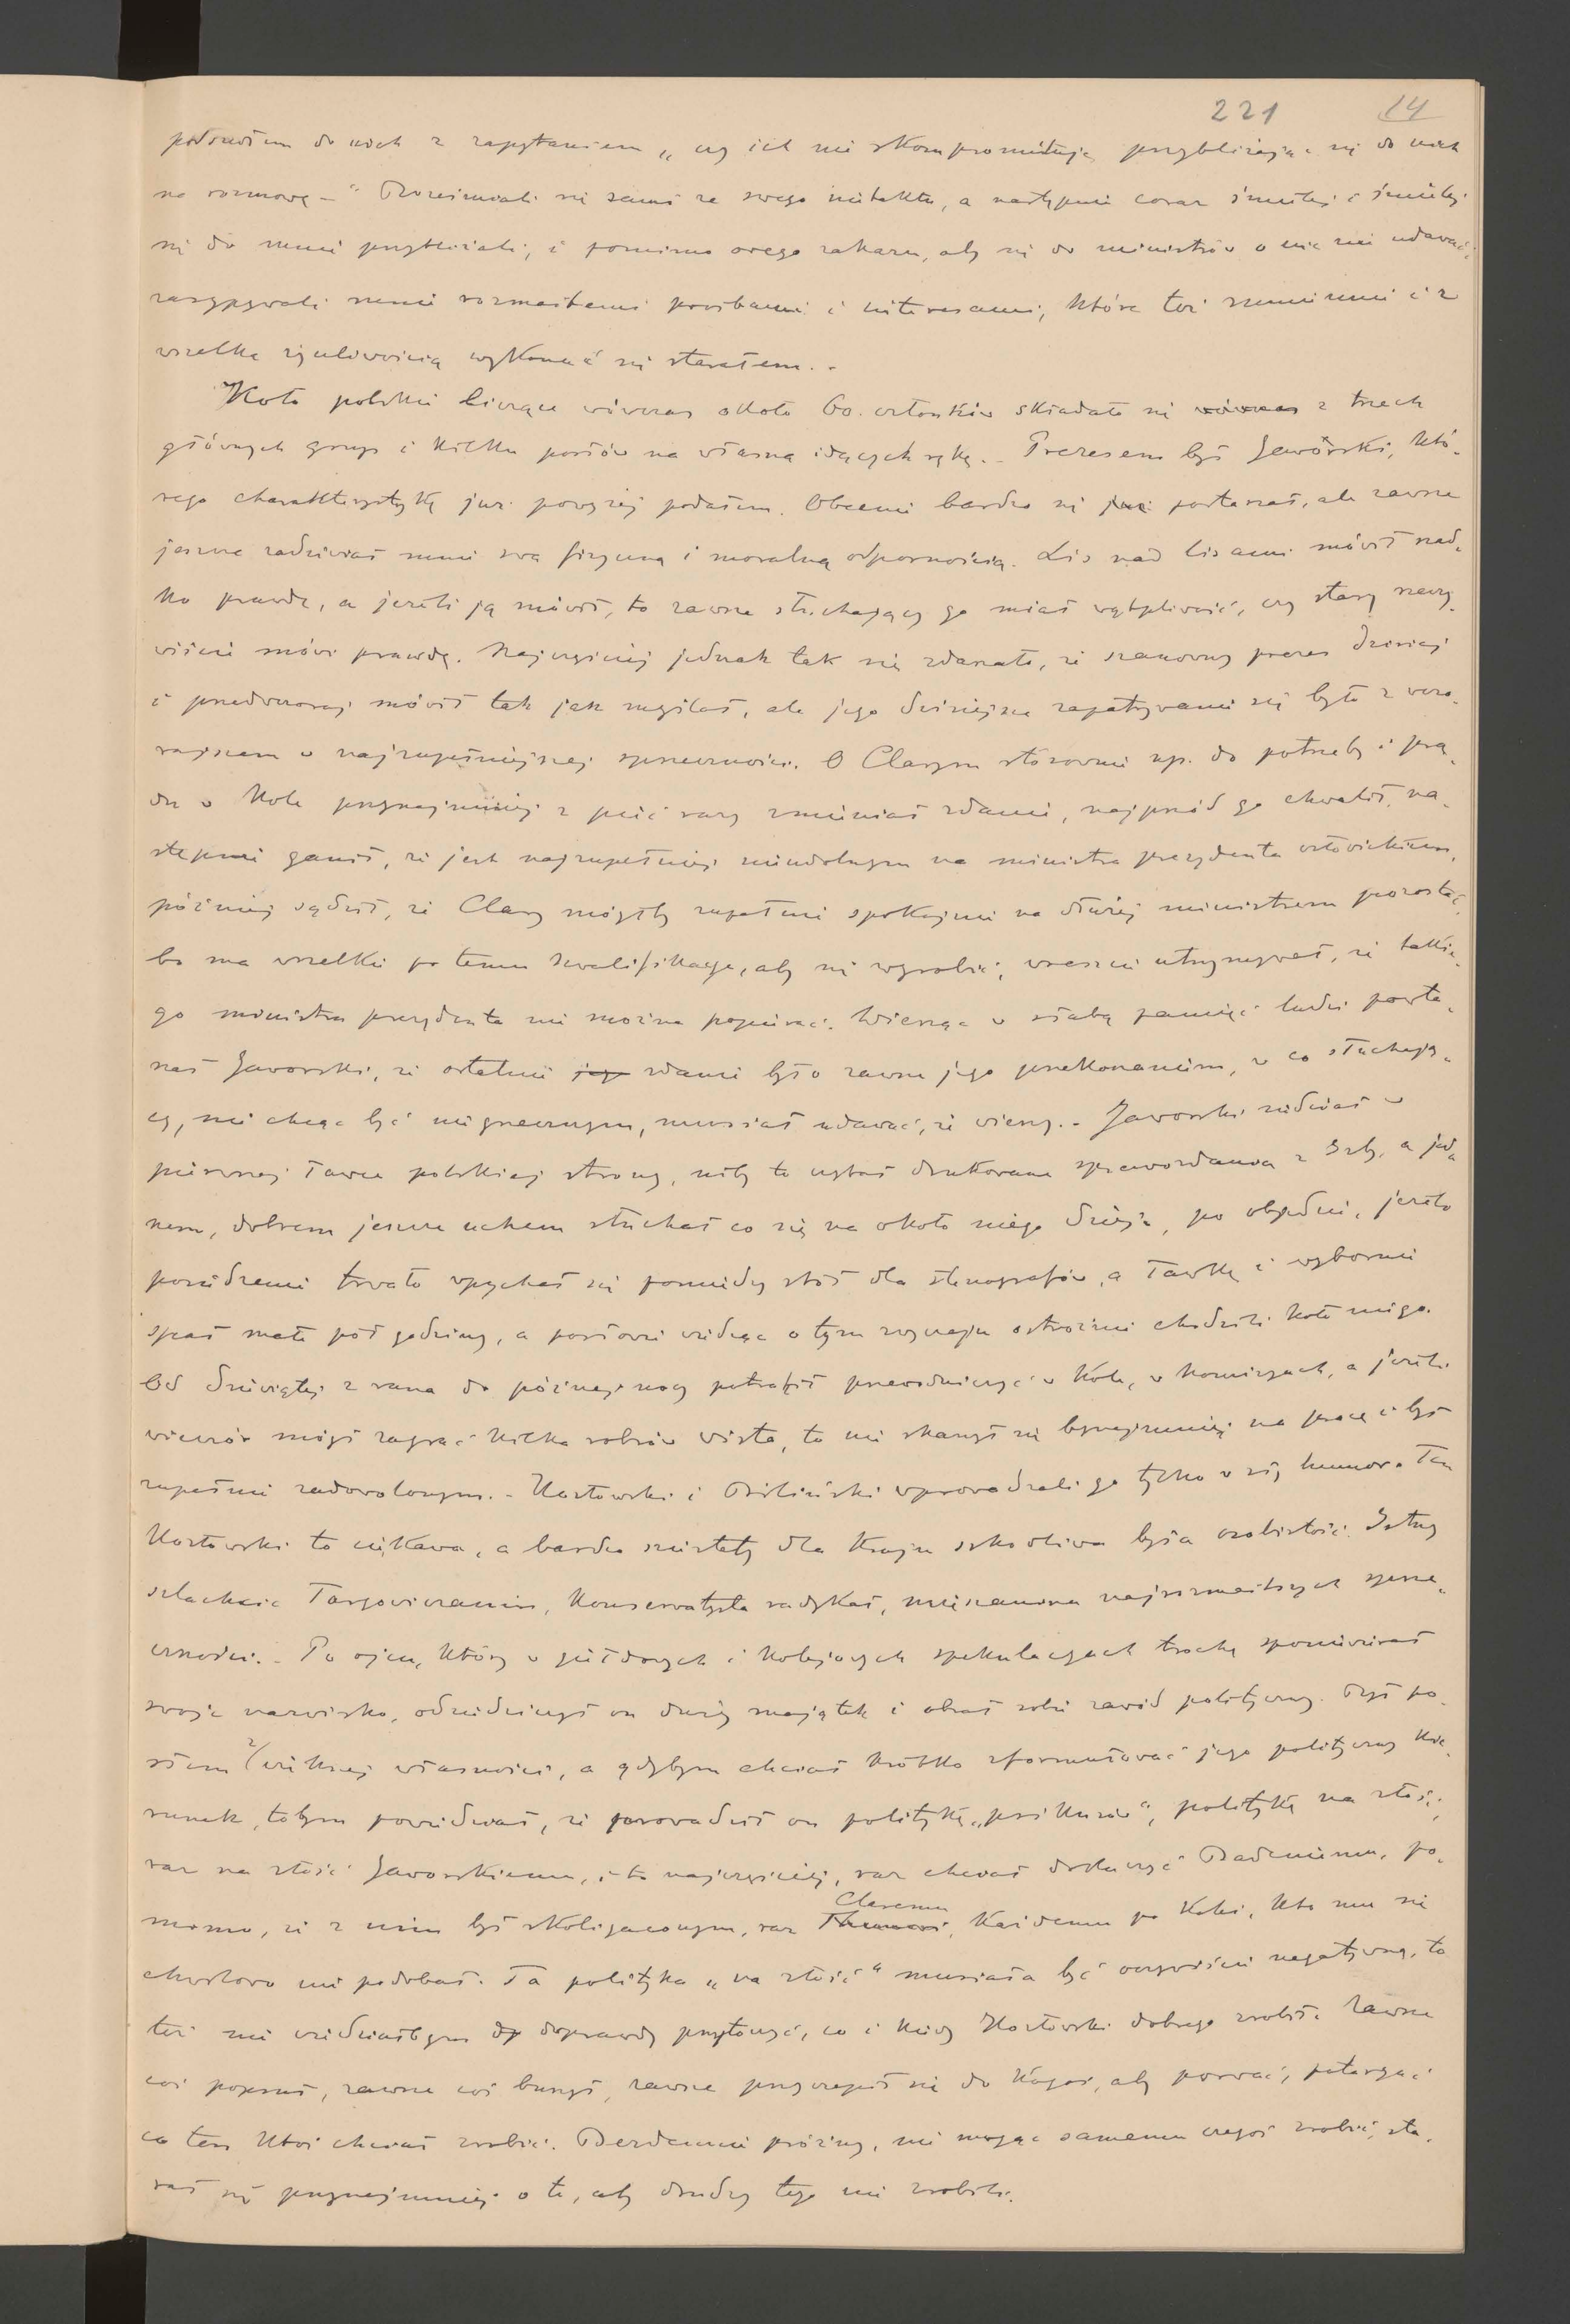 221 14
podszedłem do nich z zapytaniem „czy ich nie skompromituję przybliżając się do nich
na rozmowę –" Roześmiali się sami ze swego nietaktu, a następnie coraz śmielej i śmielej
się do mnie przybliżali, i pomimo owego zakazu, aby się do ministrów o nic nie udawać,
zasypywali mnie rozmaitemi prośbami i interesami, które też sumiennie i z
wszelką życzliwością wykonać się starałem. –
Koło polskie liczące wówczas około 60. członków składało się wówczas z trzech
głównych grup i kilku posłów na własną idących rękę. – Prezesem był Jaworski, któ-
rego charakterystykę już powyżej podałem. Obecnie bardzo się już postarzał, ale zawsze
jeszcze zadziwiał mnie swą fizyczną i moralną odpornością. Lis nad lisami mówił rzad-
ko prawdę, a jeżeli ją mówił, to zawsze słuchający go miał wątpliwość, czy stary rzeczy-
wiście mówi prawdę. Najczęściej jednak tak się zdarzało, że szanowny prezes dzisiaj
i przedwczoraj mówił tak jak myślał, ale jego dzisiejsze zapatrywanie się było z wczo-
rajszem w najzupełniejszej sprzeczności. O Clarym stosownie np. do potrzeby i prą-
du w Kole przynajmniej z pięć razy zmieniał zdanie, najprzód go chwalił, na-
stępnie ganił, że jest najzupełniej niezdolnym na ministra prezydenta człowiekiem,
później sądził, że Clary mógłby zupełnie spokojnie na dłużej ministrem pozostać,
bo ma wszelkie po temu kwalifikacye, aby się wyrobić, wreszcie utrzymywał, że takie-
go ministra prezydenta nie można popierać. Wierząc w słabą pamięć ludzi powta-
rzał Jaworski, że ostatnie jego zdanie było zawsze jego przekonaniem, w co słuchają-
cy, nie chcąc być niegrzecznym, musiał udawać, że wierzy. – Jaworski siedział w
pierwszej ławce polskiej strony, niby to czytał drukowane sprawozdania z Izby, a jed-
nem, dobrem jeszcze uchem słuchał co się na około niego dzieje, po obiedzie, jeżeli
posiedzenie trwało wpychał się pomiędzy stół dla stenografów, a ławkę i wybornie
spał małe pół godziny, a posłowie wiedząc o tym zwyczaju ostrożnie chodzili koło niego.
Od dziewiątej z rana do późnej nocy potrafił przewodniczyć w Kole, w komisyach, a jeżeli
wieczór mógł zagrać kilka robrów wista, to nie skarżył się bynajmniej na pracę i był
zupełnie zadowolonym. – Kozłowski i Biliński wprowadzali go tylko w zły humor. Ten
Kozłowski to ciekawa, a bardzo niestety dla kraju szkodliwa była osobistość. Istny
szlachcic Targowiczanin, konserwatysta radykał, mieszanina najrozmaitszych sprze-
czności. – Po ojcu, który w giełdowych i kolejowych spekulacyach trochę sponiewierał
swoje nazwisko, odziedziczył on duży majątek i obrał sobie zawód polityczny. Był po-
słem z większej własności, a gdybym chciał krótko sformułować jego polityczny kie-
runek, tobym powiedział, że prowadził on politykę „psikusów", politykę na złość,
raz na złość Jaworskiemu, i to najczęściej, raz chciał dokuczyć Badeniemu, po-
mimo, że z nim był skoligaconym, raz Claremu Thunowi, każdemu po kolei, kto mu się
chwilowo nie podobał. Ta polityka „na złość" musiała być oczywiście negatywną, to
też nie wiedziałbym do doprawdy przytoczyć, co i kiedy Kozłowski dobrego zrobił. Zawsze
coś popsuł, zawsze coś burzył, zawsze przyczepił się do kogoś, aby porwać, potargać
co ten ktoś chciał zrobić. Bezdennie próżny, nie mogąc samemu czegoś zrobić, sta-
rał się przynajmniej o to, aby drudzy tego nie zrobili.